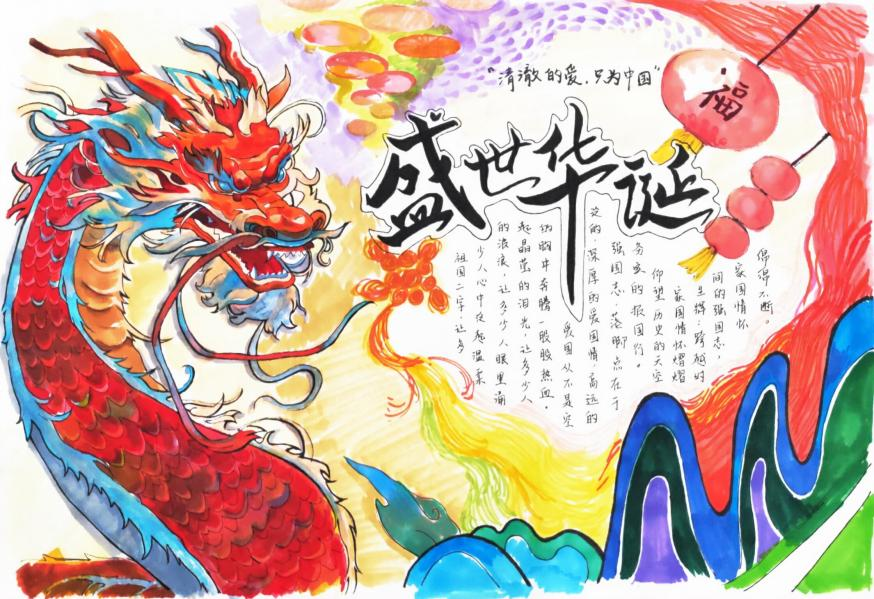 "清澈的爱,只为中国"
盛世华诞
福
祖国二字,让多
少人心中泛起温柔
的浪,让多少人眼里涌
起晶莹的泪光,让多少人
的胸中奔腾一股股热血。
爱国从不是空
泛的,深厚的爱国情,高远的
强国志,落脚点在于
务实的报国行。
仰望历史的天空
家国情怀熠熠
生辉;跨越时
间的强国志,
家国情怀
绵绵不断。